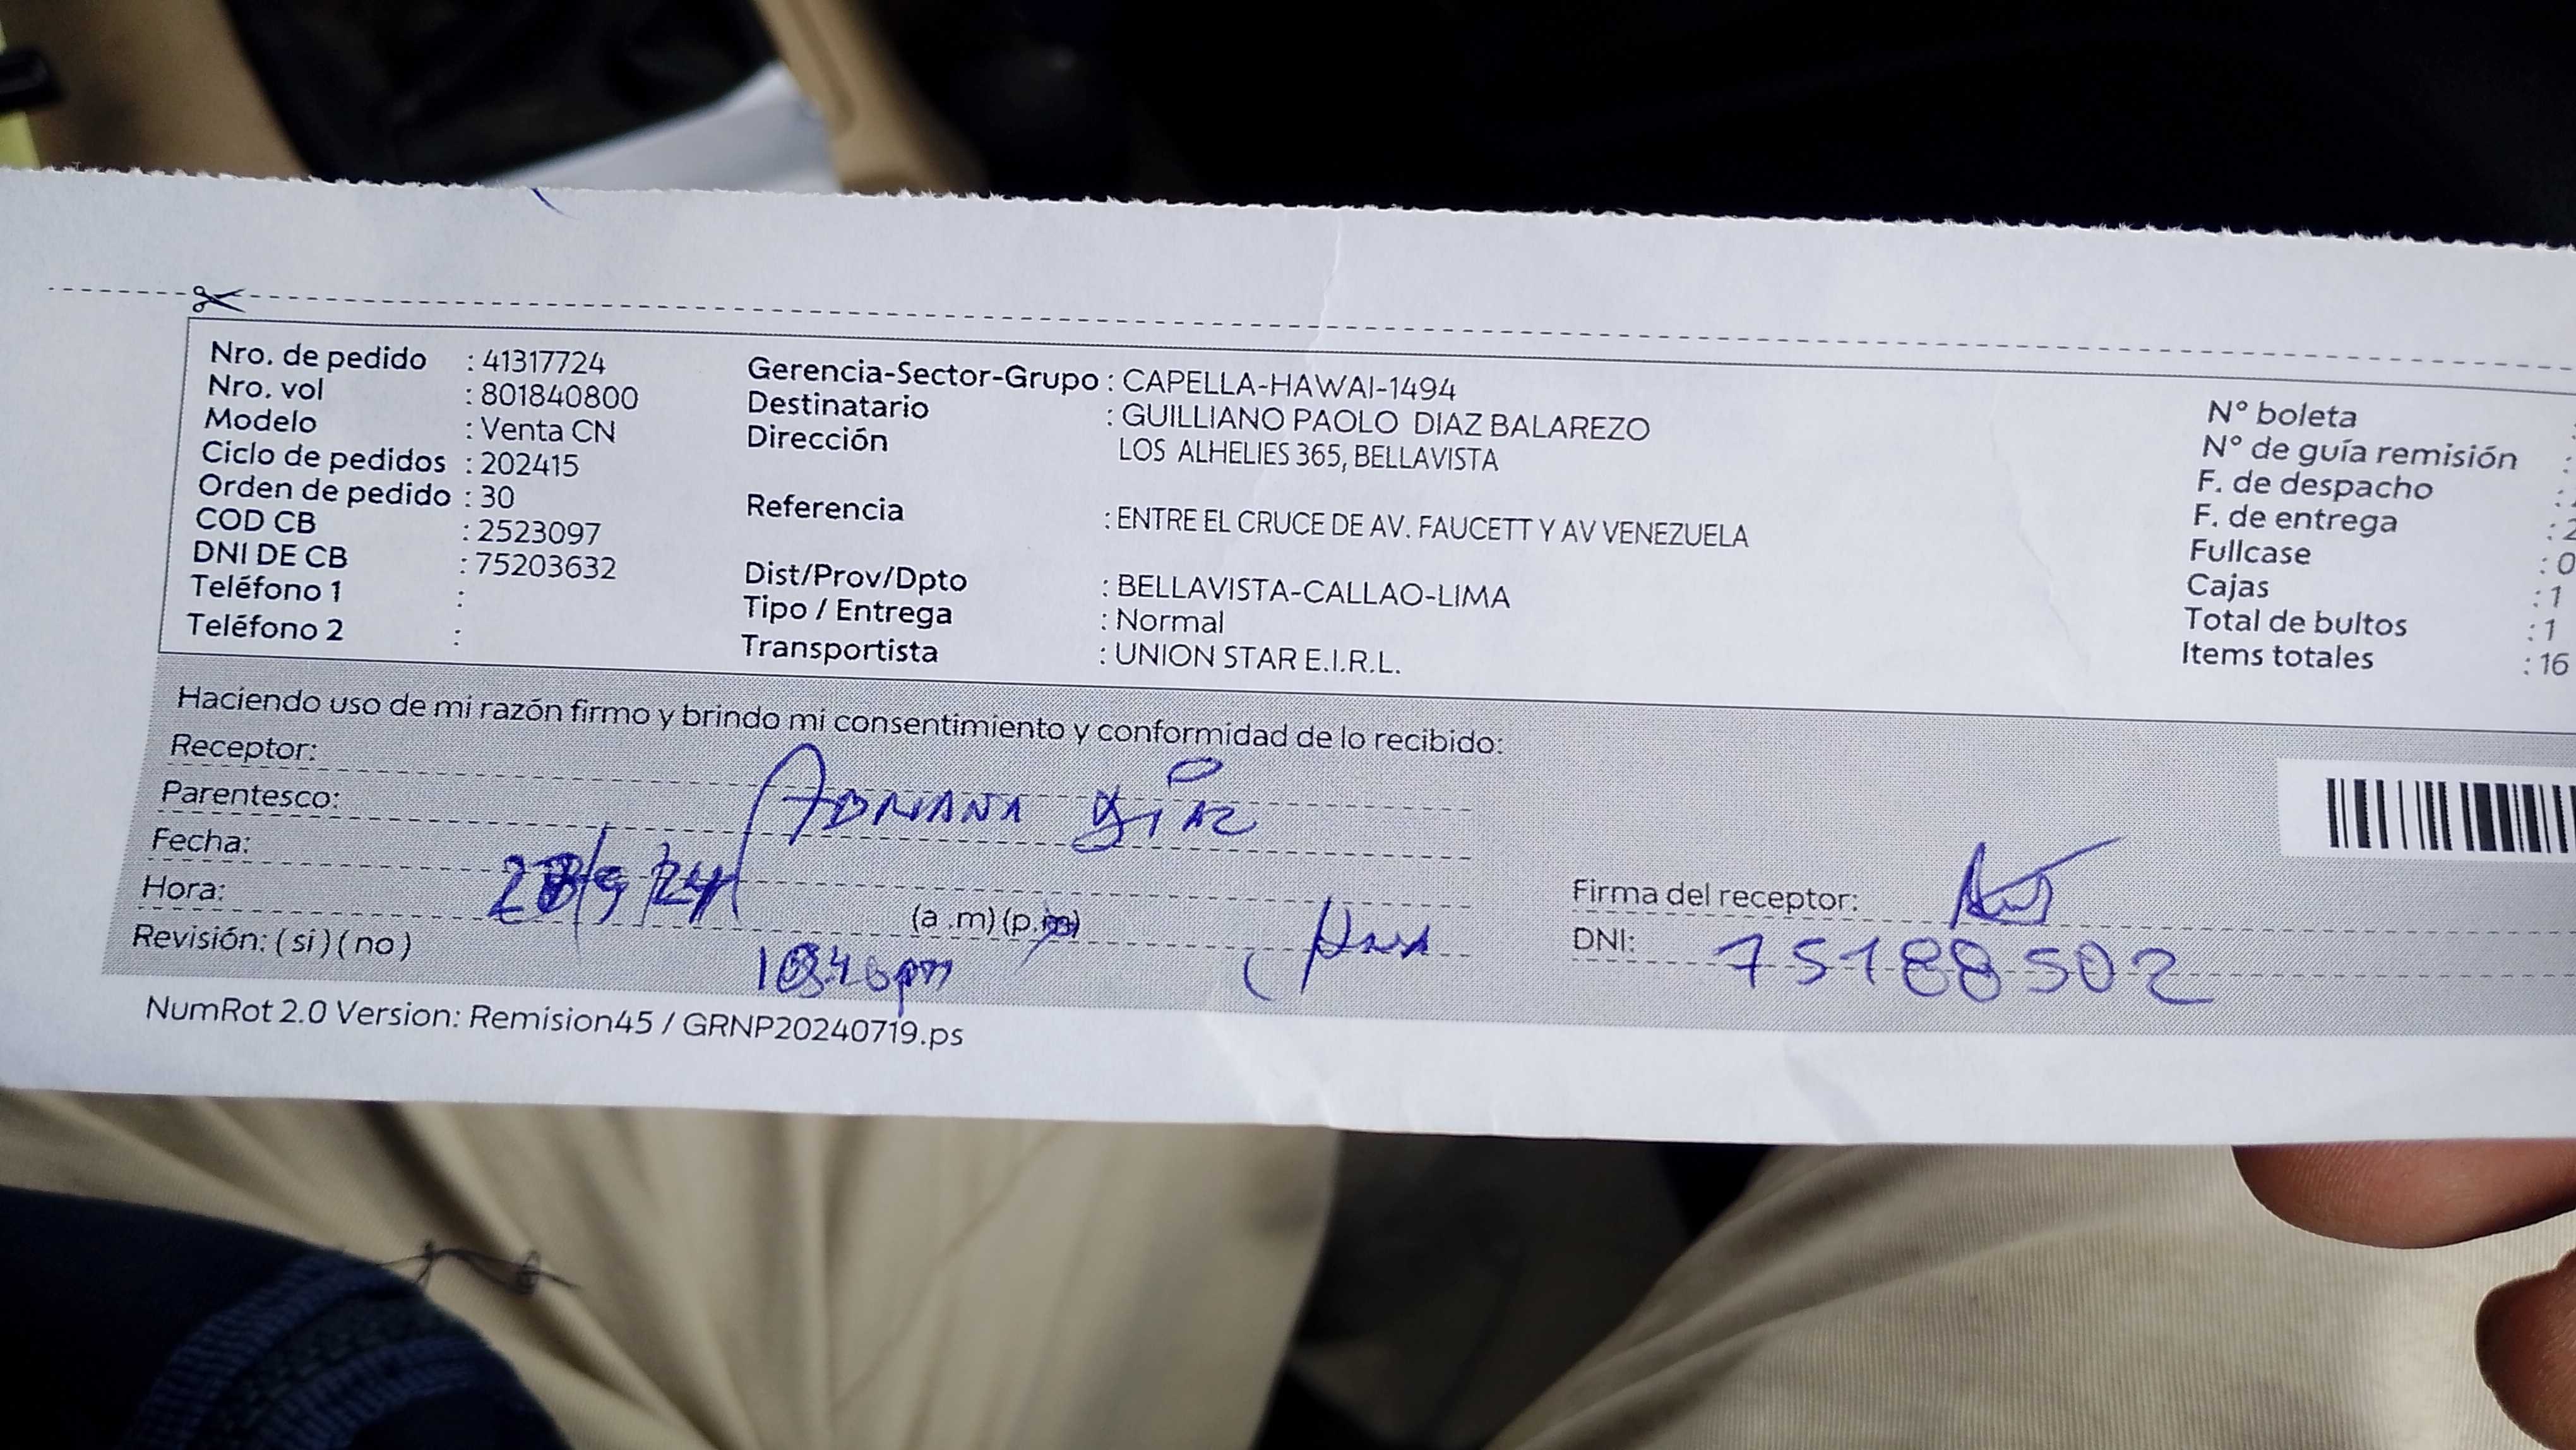 Nro. de pedido : 41317724
Nro. vol : 801840800
Modelo : Venta CN
Ciclo de pedidos : 202415
Orden de pedido : 30
COD CB : 2523097
DNI DE CB : 75203632
Teléfono 1 :
Teléfono 2 :
Gerencia-Sector-Grupo : CAPELLA-HAWAI-1494
Destinatario : GUILLIANO PAOLO DIAZ BALAREZO
Dirección LOS ALHELIES 365, BELLAVISTA
Referencia : ENTRE EL CRUCE DE AV. FAUCETT Y AV VENEZUELA
Dist/Prov/Dpto : BELLAVISTA-CALLAO-LIMA
Tipo / Entrega : Normal
Transportista : UNION STAR E.I.R.L.
N° boleta :
N° de guía remisión :
F. de despacho :
F. de entrega : 2
Fullcase : 0
Cajas : 1
Total de bultos : 1
Items totales : 16
Haciendo uso de mi razón firmo y brindo mi consentimiento y conformidad de lo recibido:
Receptor:
Parentesco: ADRIANA DíAZ
Fecha:
Hora: (a .m) (p.m)
Revisión: ( si ) ( no )
Firma del receptor:
DNI: 75188502
NumRot 2.0 Version: Remision45 / GRNP20240719.ps